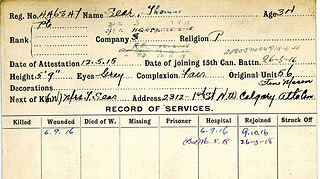 Reg. No. 446347 Name Sear, Thomas Age 34
Rank Pte Company Religion P
Date of Attestation 12.5.15 Date of joining 15th Can. Battn.
Height 5' 9" Eyes Grey Complexion Fair Original Unit 56
Decorations
Next of Kin (W) Mrs T. Sear Address 2312- 1st St N.W. Calgary Alta Can.
RECORD OF SERVICES.
Killed Wounded Died of W. Missing Prisoner Hospital Rejoined Struck Off
6.9.16 6.9.16 9.10.16
16.5.18 26-5-18